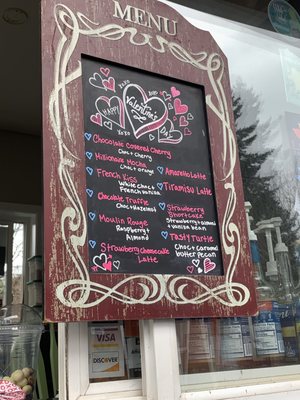 MENU
XOXO
Happy
Valentine's
Day
XOXO
Chocolate Covered Cherry
Choc + Cherry
Millionaire Mocha
Choc + orange
French Kiss
White Choc +
French Vanilla
Chocolate Truffle
Choc + Hazelnut
Moulin Rouge
Raspberry +
Almond
Strawberry Cheesecake
Latte
Amaretto Latte
Tiramisu Latte
Strawberry
Shortcake
Strawberry + almond
+ vanilla bean
Tasty Turtle
Choc + Caramel
butter Pecan
VISA
DISCOVER